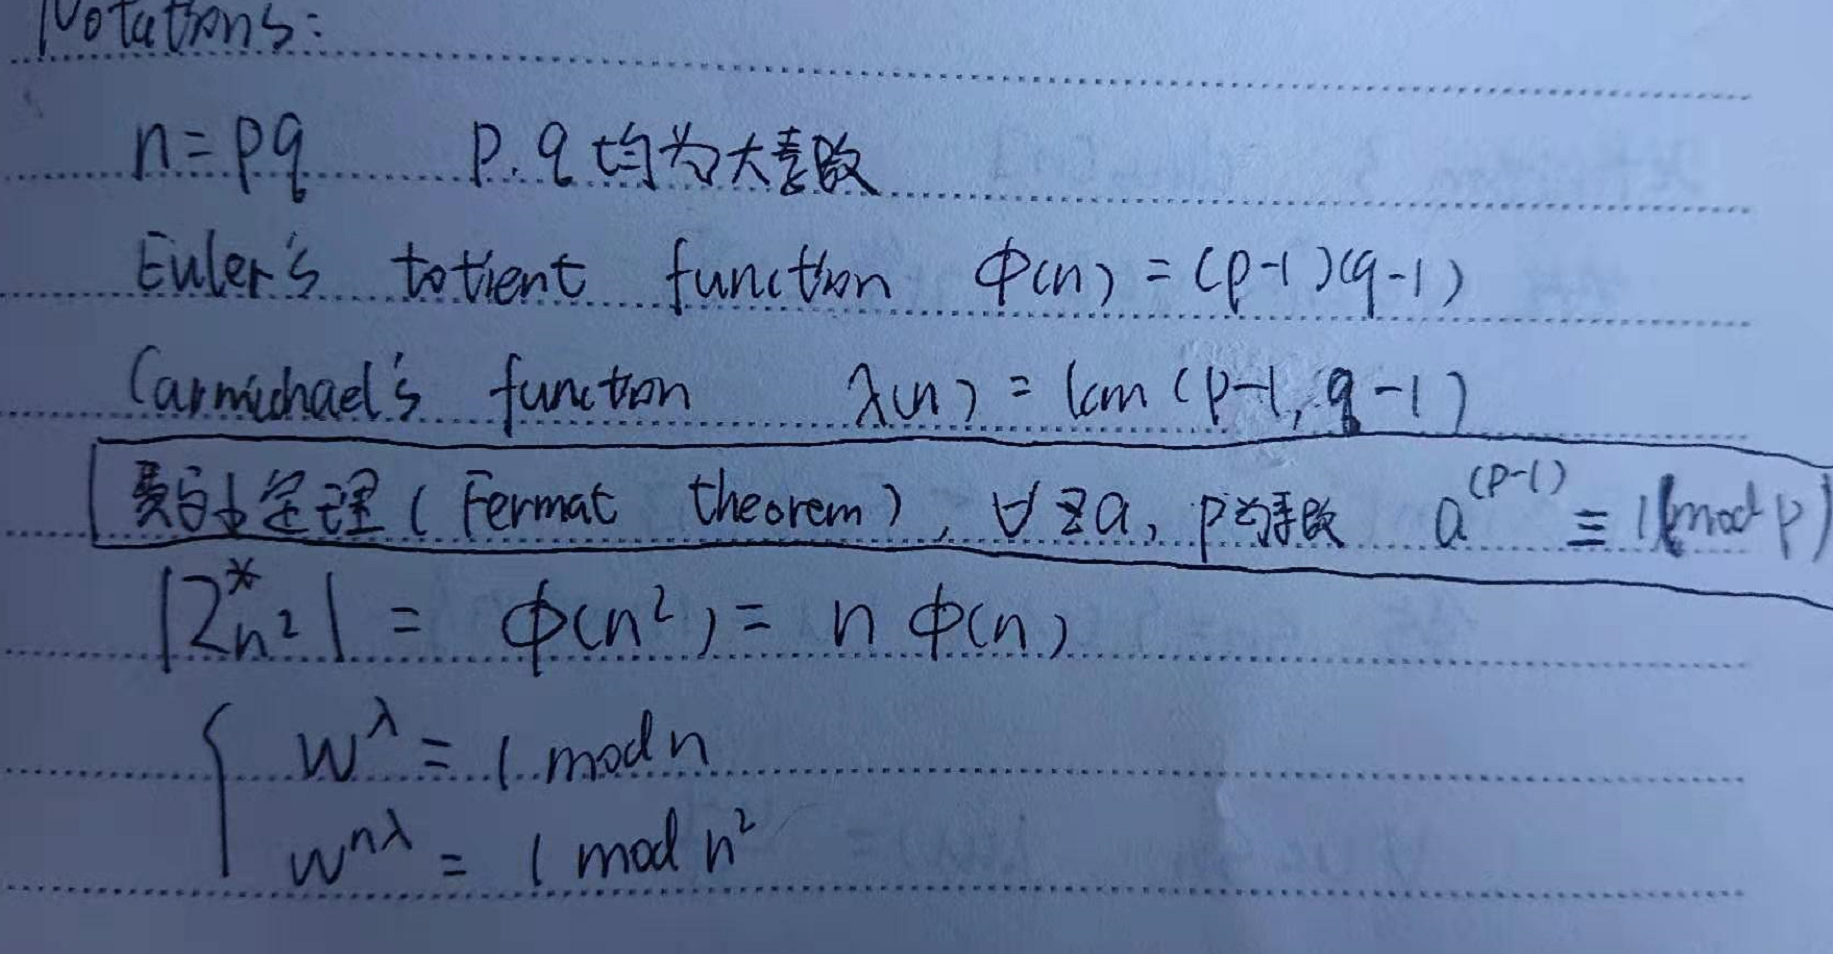 Notations:
n=pq p.q均为大素数
Euler's totient function φ(n)=(p-1)(q-1)
Carmichael's function λ(n)=lcm(p-1,q-1)
费马小定理(Fermat theorem), ∀ a, p为素数 a^(p-1) ≡ 1(mod p)
|Z*n²| = φ(n²) = n φ(n)
{ w^λ = 1 mod n
w^nλ = 1 mod n²